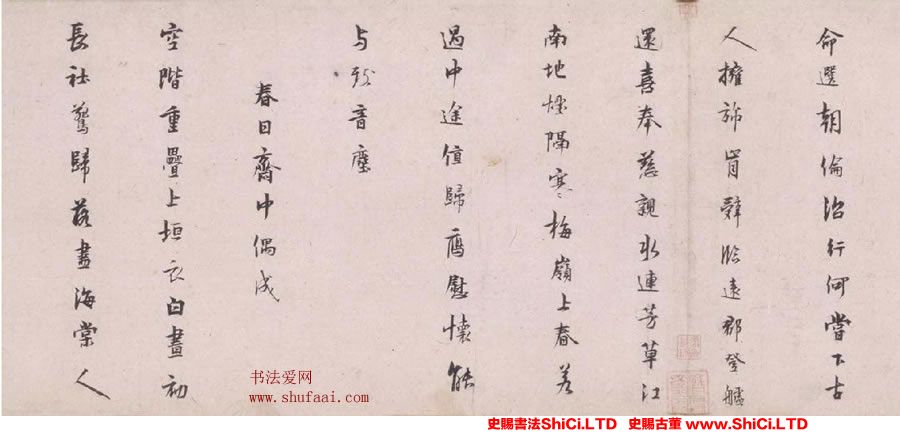 命選朝倫治行何嘗下古
人擁旆肯辭臨遠郡登艫
還喜奉慈親水連芳草江
南地煙隔寒梅嶺上春若
過中途值歸雁慰懷能
与致音塵
春日齋中偶成
空階重疊上垣衣白晝初
長社鷰歸落盡海棠人
书法爱网
www.shufaai.com
史賜書法ShiCi.LTD 史賜古董 www.ShiCi.LTD